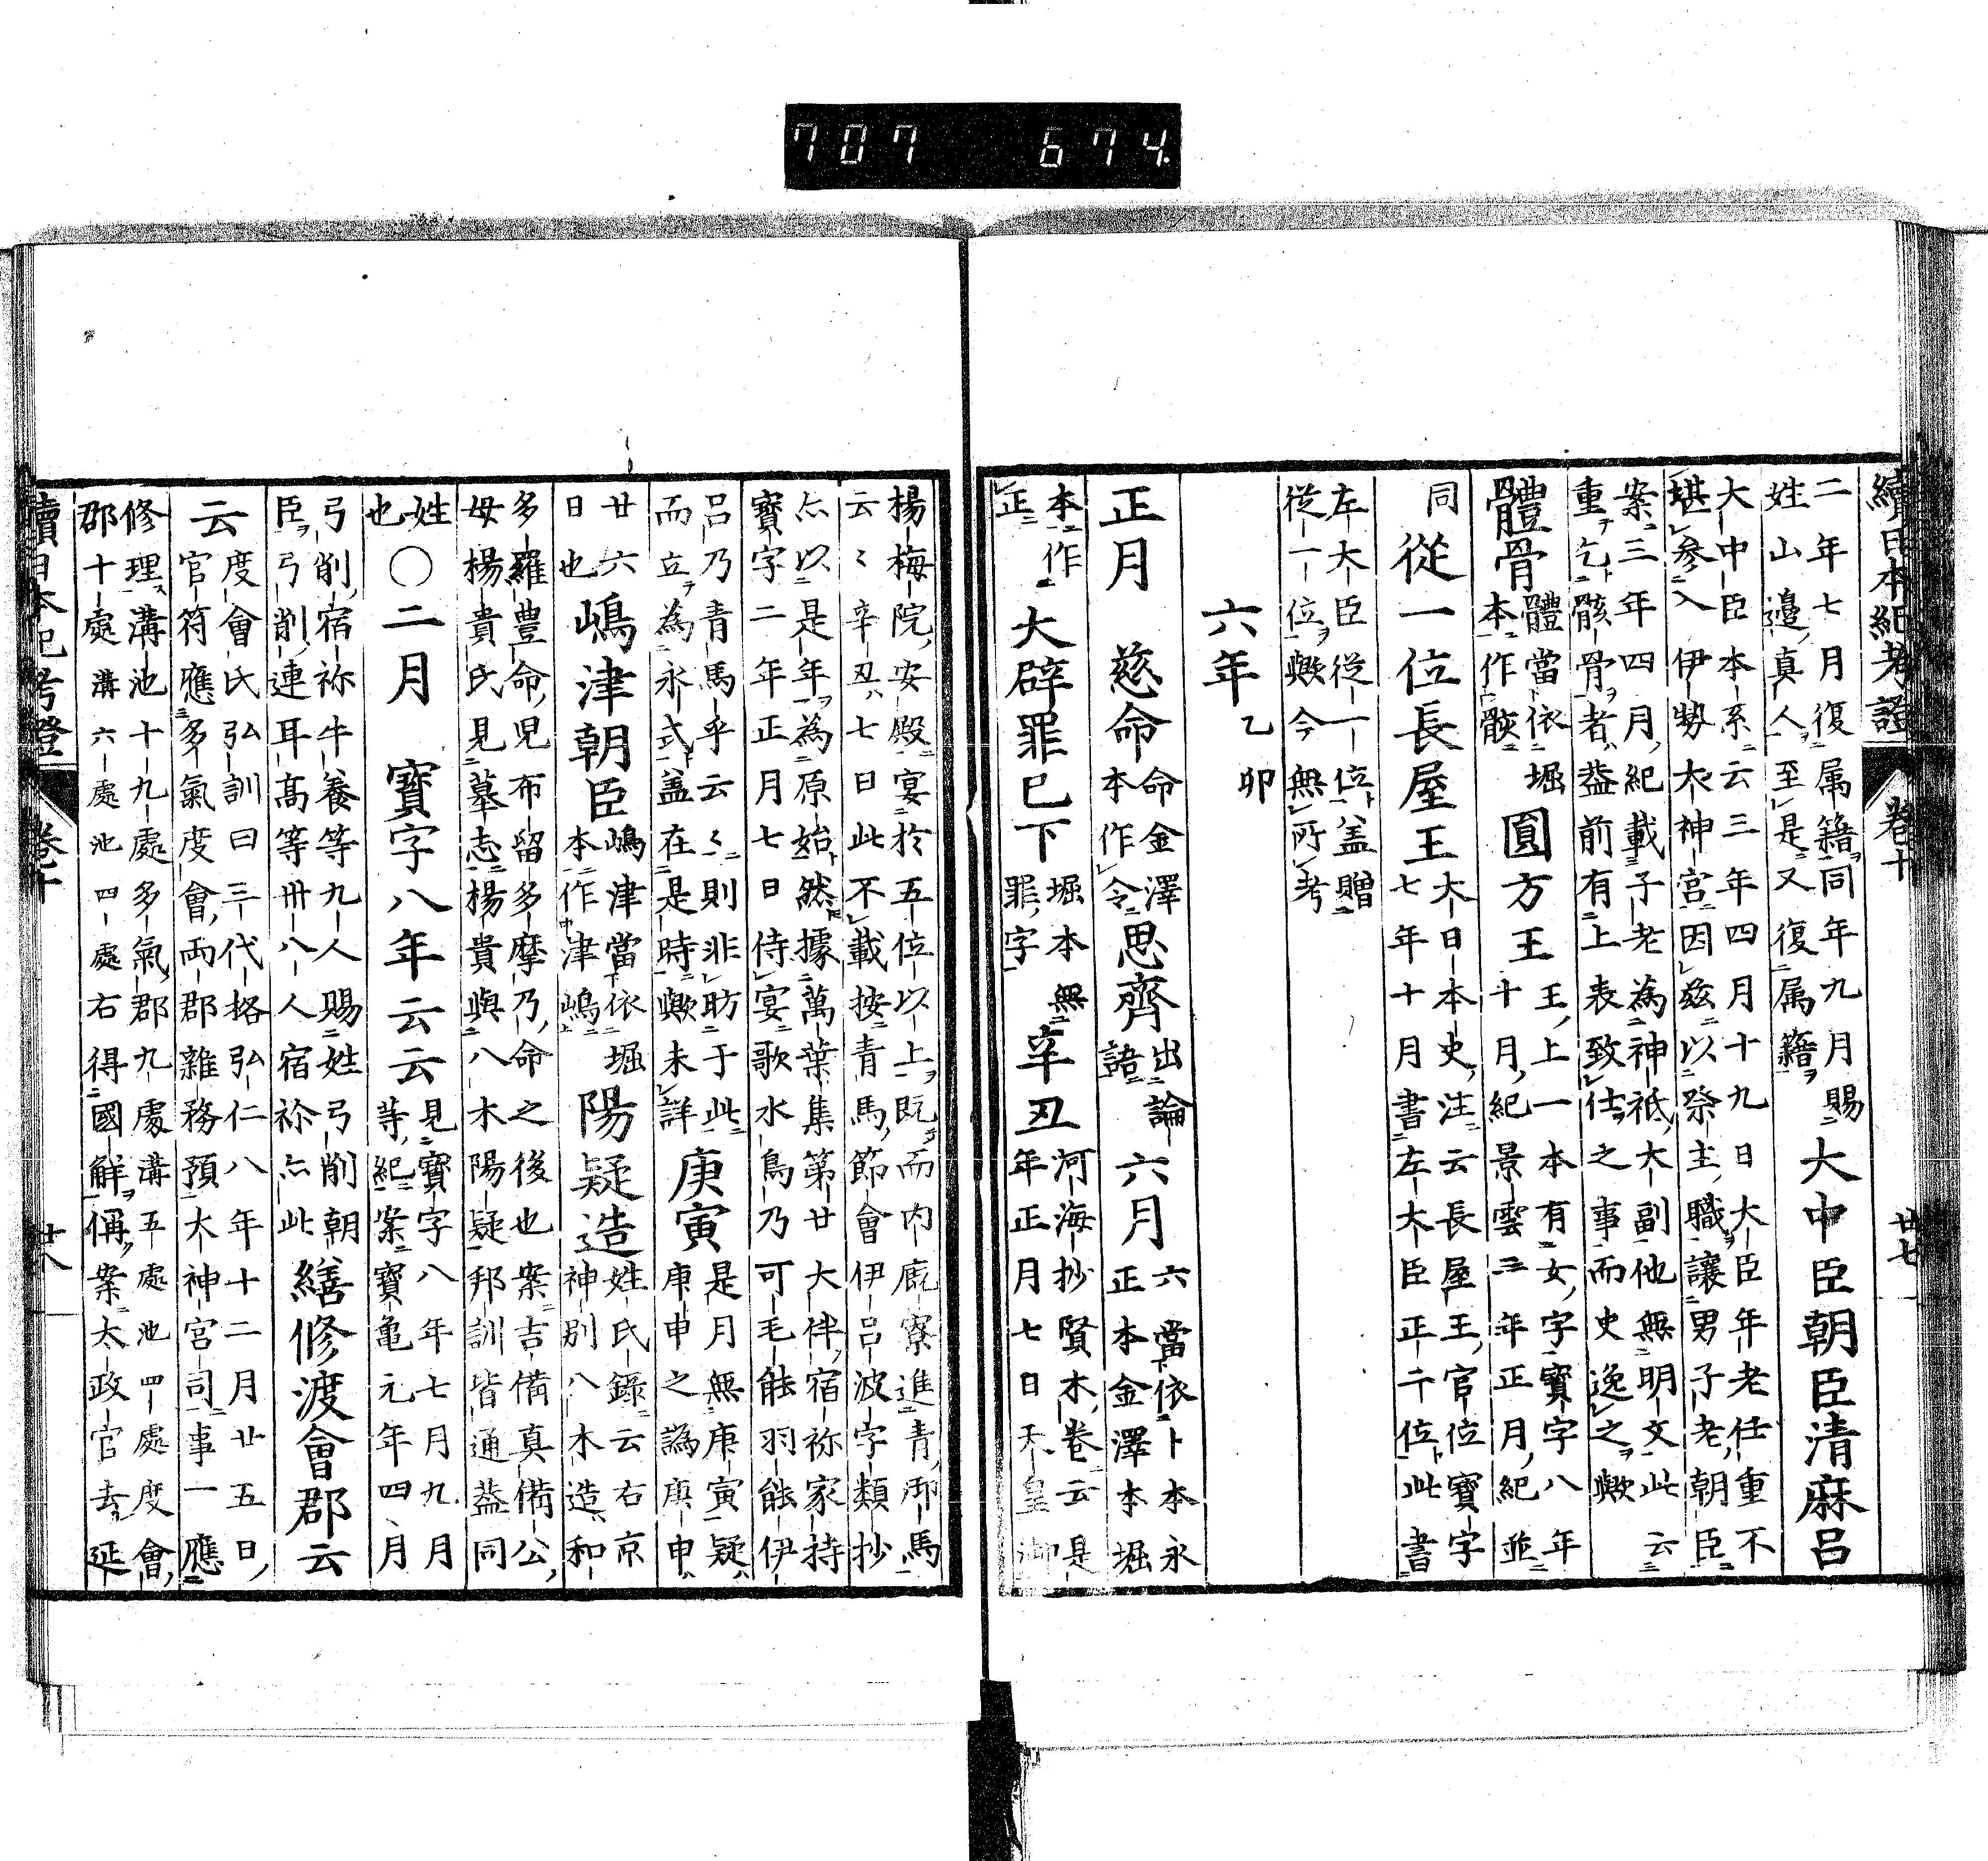 707 674
續日本紀考證 卷十 廿七
二年七月復属籍同年九月賜
姓山邉真人至是又復属籍
大中臣朝臣清麻呂
大中臣本系云三年四月十九日大臣年老任重不
堪参入伊勢大神宮因茲以祭主職讓男子老朝臣
案三年四月紀載子老為神祇大副他無明文此云
重乞骸骨者蓋前有上表致仕之事而史逸之歟
體骨
體當依堀
本作骸
圓方王
王上一本有女字寶字八年
十月紀景雲三年正月紀並
同
從一位長屋王
大日本史注云長屋王官位寶字
七年十月書左大臣正二位此書
左大臣從一位盖贈
從一位歟今無所考
六年乙卯
正月
慈命
命金澤
本作令
思齊
出論
語
六月
六當依卜本永
正本金澤本堀
本作
正
大辟罪已下
堀本無
罪字
辛丑
河海抄賢木卷云是
年正月七日天皇御
楊梅院安殿宴於五位以上既而内廐寮進青御馬
云〻辛丑七日此不載按青馬節會伊呂波字類抄
亦以是年為原始然據萬葉集第廿大伴宿祢家持
寶字二年正月七日侍宴歌水鳥乃可毛能羽能伊
呂乃青馬乎云〻則非昉于此
而立為永式盖在是時歟未詳
庚寅
是月無庚寅疑
庚申之譌庚申
廿六
日也
嶋津朝臣
嶋津當依堀
本作津嶋
陽疑造
姓氏録云右京
神別八木造和
多羅豊命兒布留多摩乃命之後也案吉備真備公
母楊貴氏見墓志楊貴與八木陽疑邦訓皆通蓋同
姓
也
○二月
寶字八年云云
見寶字八年七月九月
等紀案寶亀元年四月
弓削宿祢牛養等九人賜姓弓削朝
臣弓削連耳髙等卅八人宿祢亦此
繕修渡會郡云
云
度會氏弘訓曰三代格弘仁八年十二月廿五日
官符應多氣度會両郡雜務預大神宮司事一應
修理溝池十九處多氣郡九處溝五處池四處度會
郡十處溝六處池四處右得國解偁案太政官去延
續日本紀考證 卷十 廿八